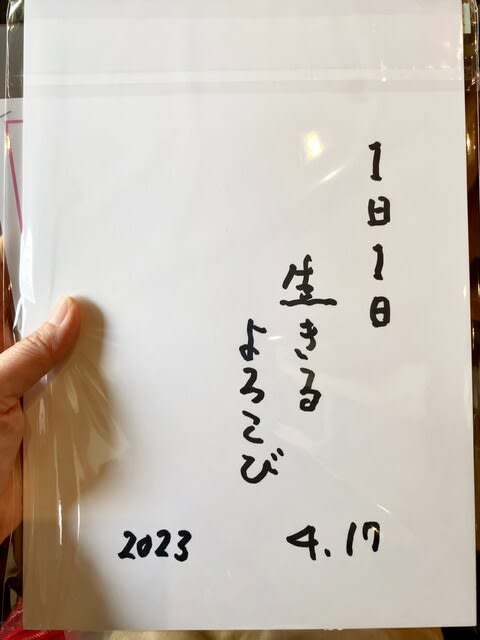 1日1日
生きる
よろこび
2023 4.17